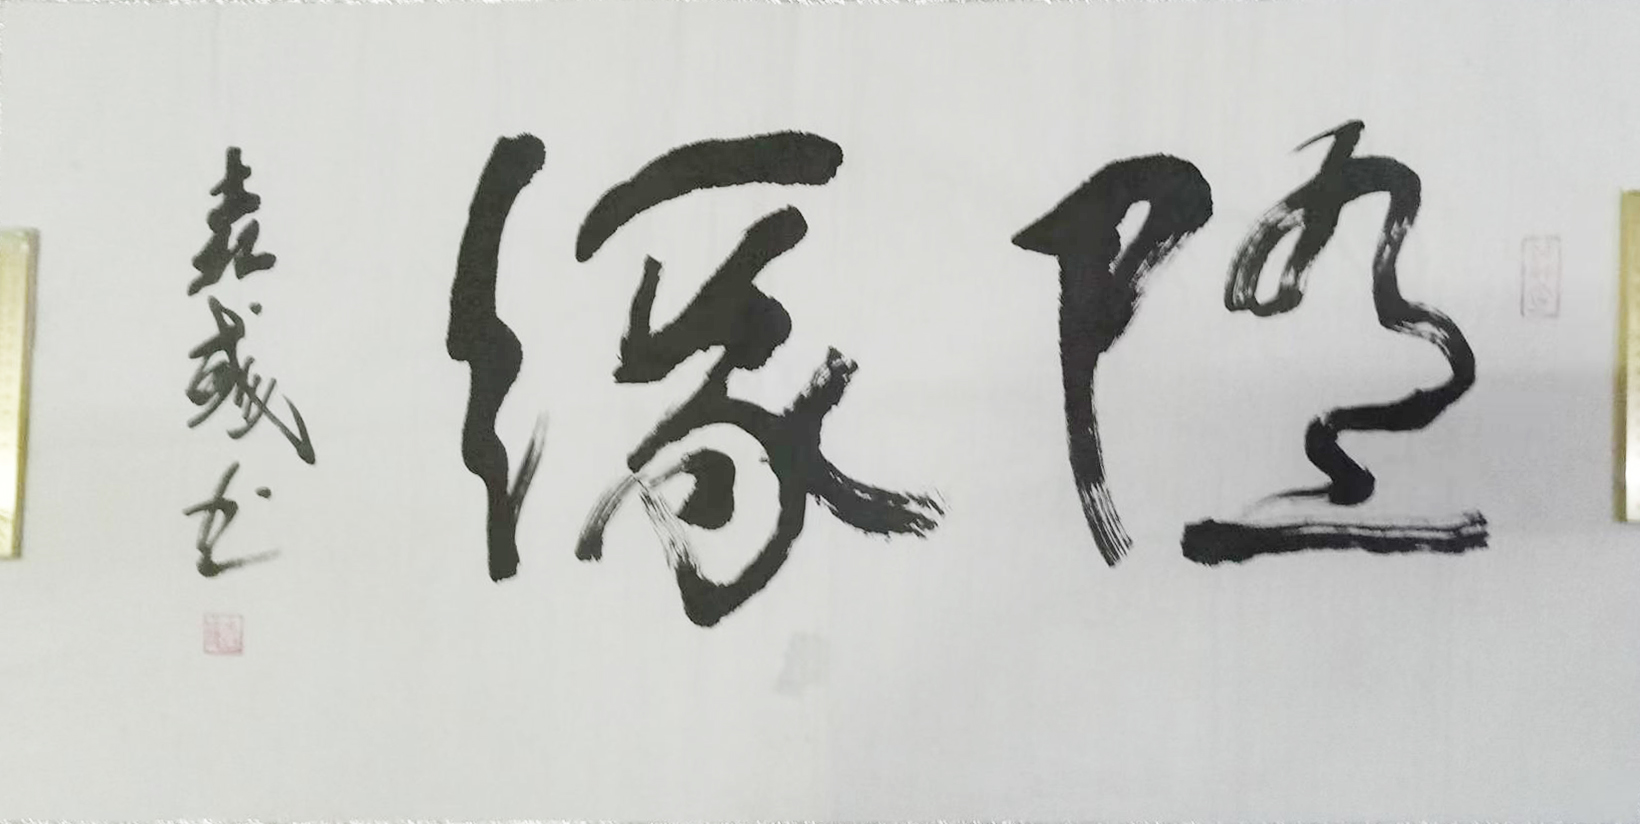 随缘
袁盛书